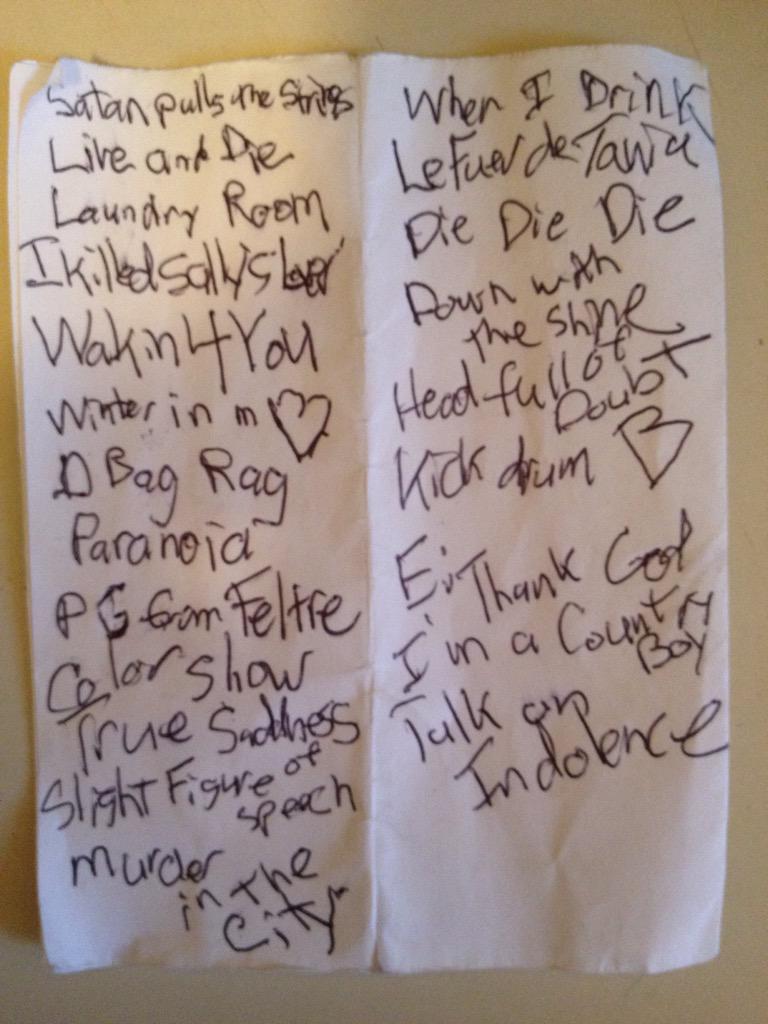 Satan pulls the Strings
Live and Die
Laundry Room
I killed Sally's lover
Wakin 4 You
Winter in m ♡
D Bag Rag
Paranoia
P G from Feltre
Color show
True Saddness
Slight Figure of
speech
murder
in the
City
When I Drink
Le Fuer de Tawia
Die Die Die
Down with
the shine
Head full of
Doubt
Kick drum ♡
E: Thank God
I'm a Country
Boy
Talk on
Indolence